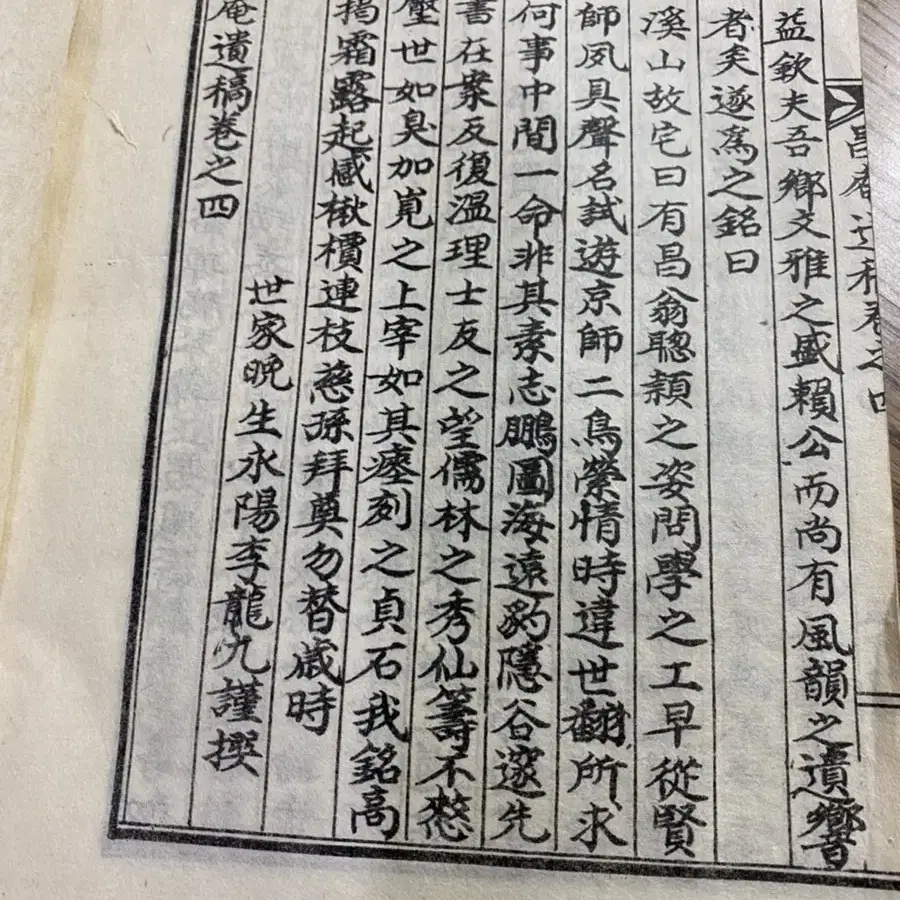 昌庵遺稿卷之四
益欽夫吾鄉文雅之盛賴公而尚有風韻之遺響
者矣遂爲之銘曰
溪山故宅曰有昌翁聰穎之姿問學之工早從賢
師夙具聲名試遊京師二鳥縈情時違世翻所求
何事中間一命非其素志鵬圖海遠豹隱谷邃先
書在案反復溫理士友之望儒林之秀仙籌不憖
壓世如臭加冕之上宰如其瘞刻之貞石我銘高
揭霜露起感楸檟連枝慈孫拜奠勿替歲時
世家晩生永陽李龍九謹撰
庵遺稿卷之四